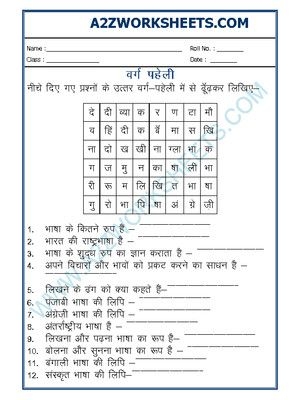 A2ZWORKSHEETS.COM
Name : Roll No. :
Class : Date :
वर्ग पहेली
नीचे दिए गए प्रश्नों के उत्तर वर्ग–पहेली में से ढूँढकर लिखिए–
दे दी व्या क र ण टा मौ
य हिं दी क बें मा स खि
ना दो ख खी ना ग्ला भा क
ग ज मु न का षा ली भा
री रू म लि खि त भा षा
गु रो भा पि षा अं ग्रे जी
1. भाषा के कितने रुप हैं –
2. भारत की राष्ट्रभाषा है –
3. भाषा के शुद्ध रुप का ज्ञान कराता है –
4. अपने विचारों और भावों को प्रकट करने का साधन है –
5. लिखने के ढ़ंग को क्या कहते हैं–
6. पंजाबी भाषा की लिपि –
7. अंग्रेजी भाषा की लिपि –
8. अंतर्राष्ट्रीय भाषा है –
9. लिखना और पढ़ना भाषा का रूप है–
10. बोलना और सुनना भाषा का रूप है –
11. बंगाली भाषा की लिपि –
12. संस्कृत भाषा की लिपि –
WWW.A2ZWORKSHEETS.COM